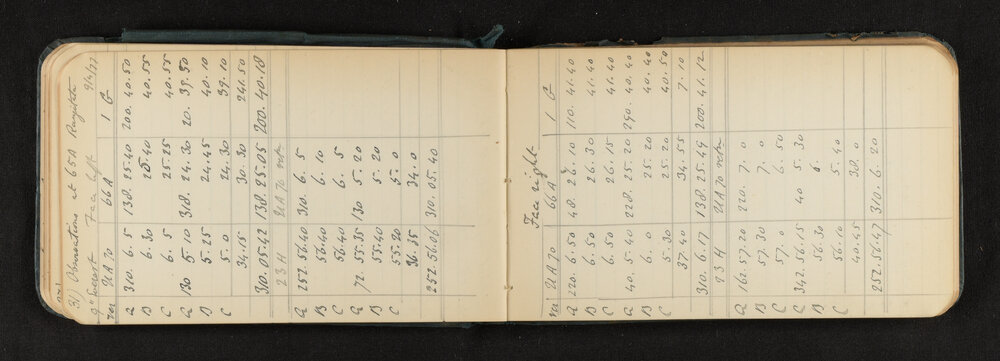 31) Observations at 65A
Face left
UA 70 66A 1 G
A 310. 6. 5 138. 25. 40 200. 40. 50
B 6. 30 25. 40 40. 55
C 6. 5 25. 25 40. 55
A 130 5. 10 318. 24. 30 20. 39. 50
B 5. 25 24. 45 40. 10
C 5. 0 24. 30 39. 10
34. 15 30. 30 241. 50
310. 05. 42 138. 25. 05 200. 40. 18
23 H UA 70 retn
A 252. 56. 40 310. 6. 5
B 56. 40 6. 10
C 56. 40 6. 5
A 72. 55. 35 130 5. 20
B 55. 40 5. 20
C 55. 20 5. 0
36. 35 34. 0
252. 56. 06 310. 05. 40
Face right
UA 70 66A 1 G
A 220. 6. 50 48. 26. 10 110. 41. 40
B 6. 50 26. 30 41. 40
C 6. 50 26. 15 41. 40
A 40. 5. 40 228. 25. 20 290. 40. 40
B 6. 0 25. 20 40. 40
C 5. 30 25. 20 40. 50
37. 40 34. 55 7. 10
310. 6. 17 138. 25. 49 200. 41. 12
23 H UA 70 retn
A 162. 57. 20 220. 7. 0
B 57. 30 7. 0
C 57. 0 6. 50
A 342. 56. 15 40 5. 30
B 56. 30 6.
C 56. 10 5. 40
40. 45 38. 0
252. 56. 47 310. 6. 20